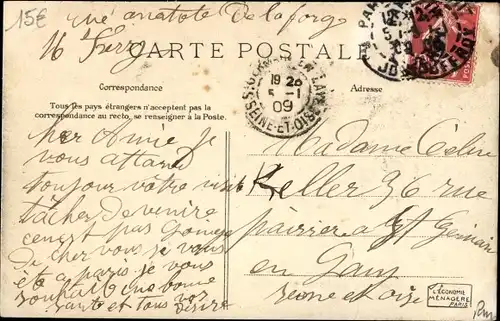 15€
rue anatole Delaforge
16
CARTE POSTALE
Correspondance
Adresse
Tous les pays étrangers n'acceptent pas la
correspondance au recto, se renseigner à la Poste.
ST GERMAIN-EN-LAYE
19 20
5 - 1
09
SEINE-ET-OISE
PARIS
cher Amie je
vous attand
toujour vôtre visite
tâcher De venire
cenest pas
De cher vous si vous
ète a paris je vous
souhait une bonne
santé et tous vos
désire
Madame Céline
Keller 36 rue
à St Germain
en Lay
seine et oise
L'ÉCONOMIE
MÉNAGÈRE
PARIS